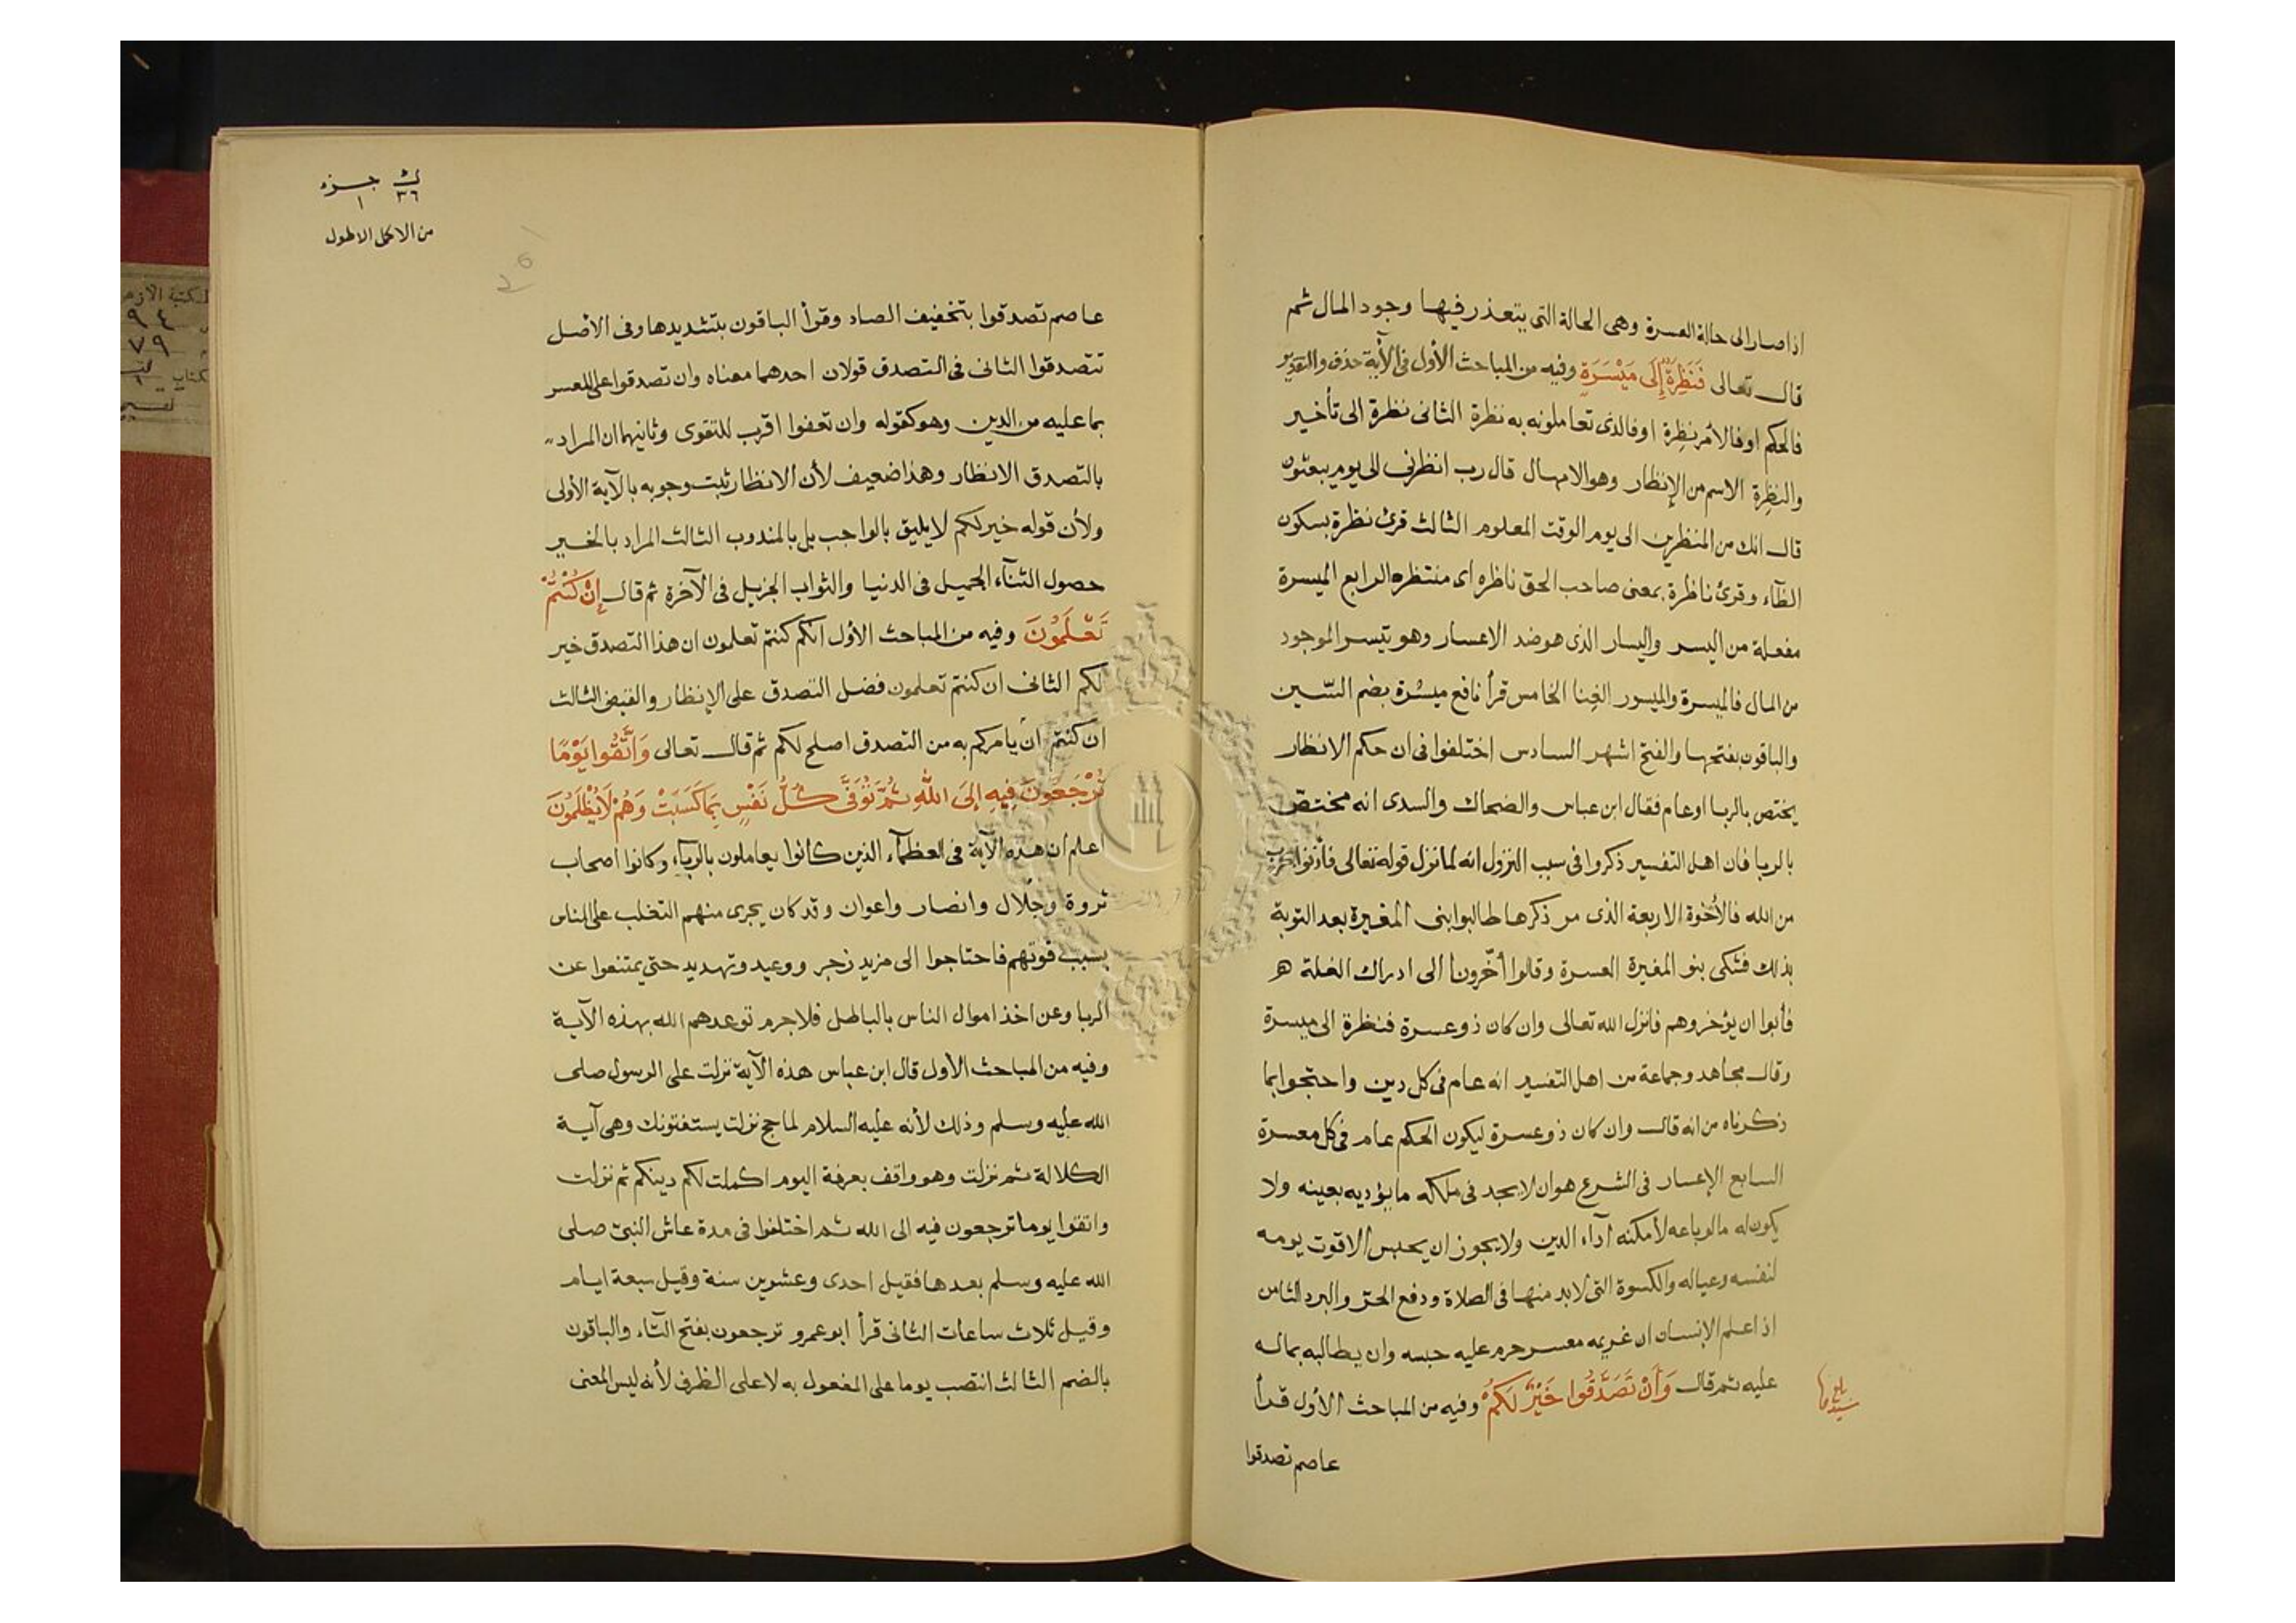 اذا صار الى حالة العسرة وهى الحالة التى يتعذر فيها وجود المال ثم
قال تعالى فَنَظِرَةٌ إِلَى مَيْسَرَةٍ وفيه من المباحث الأول فى الأية حذف والتقدير
فالحكم اوفالأمر نظِرة اوفالذى تعاملونه به نظرة الثانى نظرة الى تأخير
والنظِرة الاسم من الإنظار وهو الامهال قال رب انظرنى الى يوم يبعثون
قال انك من المنظرين الى يوم الوقت المعلوم الثالث قرئ نظرة بسكون
الظآء وقرئ ناظرة بمعنى صاحب الحق ناظره اى منتظره الرابع الميسرة
مفعلة من اليسر واليسار الذى هو ضد الاعسار وهو تيسر الموجود
من المال فالميسرة والميسور الغِنا الخامس قرأ نافع ميسُرة بضم السّين
والباقون بفتحها والفتح اشهر السادس اختلفوا فى ان حكم الانظار
يختص بالربا اوعام فقال ابن عباس والضحاك والسدى انه مختصّ
بالربا فان اهل التفسير ذكروا فى سبب النزول انه لما نزل قوله تعالى فأذنوا بحرب
من الله فالأخوة الاربعة الذى مر ذكرها طالبوا بنى المغيرة بعد التوبة
بذلك فشكى بنو المغيرة العسرة وقالوا أخّرونا الى ادراك الغلة
فأبوا ان يؤخروهم فانزل الله تعالى وان كان ذوعسرة فنظرة الى ميسرة
وقال مجاهد وجماعة من اهل التفسير انه عام فى كل دين واحتجوا بما
ذكرناه من انه قال وان كان ذوعسرة ليكون الحكم عام فى كل معسرة
السابع الإعسار فى الشرع هو ان لا يجد فى ملكه ما يؤديه بعينه ولا
يكون له مالو باعه لأمكنه آداء الدين ولا يجوز ان يحبس الا قوت يومه
لنفسه وعياله والكسوة التى لابد منها فى الصلاة ودفع الحرّ والبرد الثامن
اذا علم الإنسان ان غريمه معسر حرم عليه حبسه وان يطالبه بماله
عليه ثم قال وَأَنْ تَصَدَّقُوا خَيْرٌ لَكُمْ وفيه من المباحث الأول قرأ
عاصم تصدقوا
جزء
١
٣٦
من الاكمل الاطول
عاصم تصدقوا بتخفيف الصاد وقرأ الباقون بتشديدها وفى الأصل
تتصدقوا الثانى فى التصدق قولان احدهما معناه وان تصدقوا على المعسر
بما عليه من الدين وهو كقوله وان تعفوا اقرب للتقوى وثانيهما ان المراد
بالتصدق الانظار وهذا ضعيف لأن الانظار ثبت وجوبه بالآية الأولى
ولأن قوله خير لكم لا يليق بالواجب بل بالمندوب الثالث المراد بالخير
حصول الثنآء الجميل فى الدنيا والثواب الجزيل فى الآخرة ثم قال إِنْ كُنْتُمْ
تَعْلَمُونَ وفيه من المباحث الأول انكم كنتم تعلمون ان هذا التصدق خير
لكم الثانى ان كنتم تعلمون فضل التصدق على الإنظار والقبض الثالث
ان كنتم ان يامركم به من التصدق اصلح لكم ثم قال تعالى وَاتَّقُوا يَوْمًا
تُرْجَعُونَ فِيهِ إِلَى اللهِ ثُمَّ تُوَفَّى كُلُّ نَفْسٍ بِمَا كَسَبَتْ وَهُمْ لَا يُظْلَمُونَ
اعلم ان هذه الآية فى العظمآء الذين كانوا يعاملون بالربآء وكانوا اصحاب
ثروة وجلال وانصار واعوان وقد كان يجرى منهم التغلب على الناس
بسبب قوتهم فاحتاجوا الى مزيد زجر ووعيد وتهديد حتى يمتنعوا عن
الربا وعن اخذ اموال الناس بالباطل فلاجرم توعدهم الله بهذه الآية
وفيه من المباحث الأول قال ابن عباس هذه الآية نزلت على الرسول صلى
الله عليه وسلم وذلك لأنه عليه السلام لما حج نزلت يستفتونك وهى آية
الكلالة ثم نزلت وهو واقف بعرفة اليوم اكملت لكم دينكم ثم نزلت
واتقوا يوما ترجعون فيه الى الله ثم اختلفوا فى مدة عاش النبىّ صلى
الله عليه وسلم بعدها فقيل احدى وعشرين سنة وقيل سبعة ايام
وقيل ثلاث ساعات الثانى قرأ ابوعمرو ترجعون بفتح التّاء والباقون
بالضم الثالث انتصب يوما على المفعول به لا على الظرف لأنه ليس المعنى